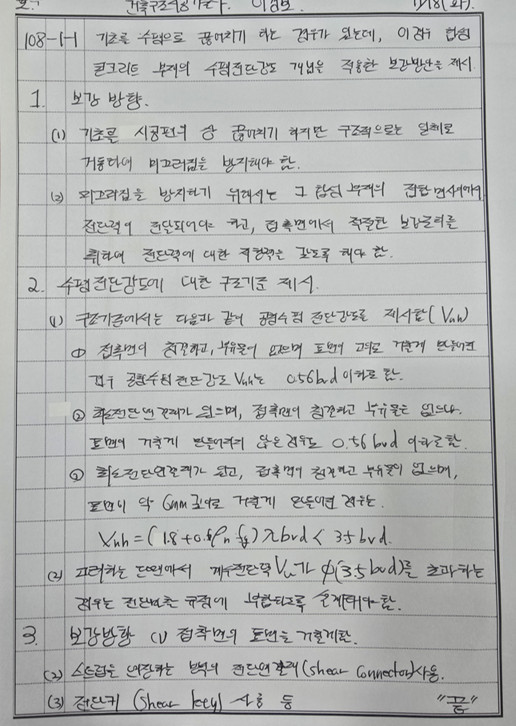 건축구조기술사. 11/18(화).
108-1-1 기초를 수평으로 끊어치기 하는 경우가 있는데, 이 경우 합성
콘크리트 부재의 수평전단강도 개념을 적용한 보강방안을 제시
1. 보강 방향.
(1) 기초를 시공편의 상 끊어치기 하지만 구조적으로는 일체로
거동하여 미끄러짐을 방지해야 함.
(2) 미끄러짐을 방지하기 위해서는 그 합성 부재의 접합면 사이에서
전단력이 전달되어야 하고, 접촉면에서 적절한 보강근리를
취하여 전단력에 대한 저항력을 갖도록 해야 함.
2. 수평전단강도에 대한 구조기준 제시.
(1) 구조기준에서는 다음과 같이 공칭수평 전단강도를 제시함(Vnh)
① 접촉면이 청결하고, 부유물이 없으며 표면의 고의로 거칠게 만들어진
경우 공칭수평전단강도 Vnh는 0.56bvd 이하로 함.
② 최소전단연결재가 있으며, 접촉면이 청결하고 부유물은 없으나
표면이 거칠게 만들어지지 않은 경우도 0.56bvd 이하로 함.
③ 최소전단연결재가 있고, 접촉면이 청결하고 부유물이 없으며,
표면이 약 6mm 깊이로 거칠게 만들어진 경우는
Vnh = (1.8+0.6ρn fy) λbvd < 3.5bvd.
(2) 고려하는 단면에서 계수전단력 Vu가 φ(3.5bvd)를 초과하는
경우는 전단마찰 규정에 부합되도록 설계해야 함.
3. 보강방향 (1) 접촉면의 표면을 거칠게함.
(2) 스트럽을 연장하는 방식의 전단연결재(shear connector)사용.
(3) 전단키 (shear key) 사용 등 "끝"